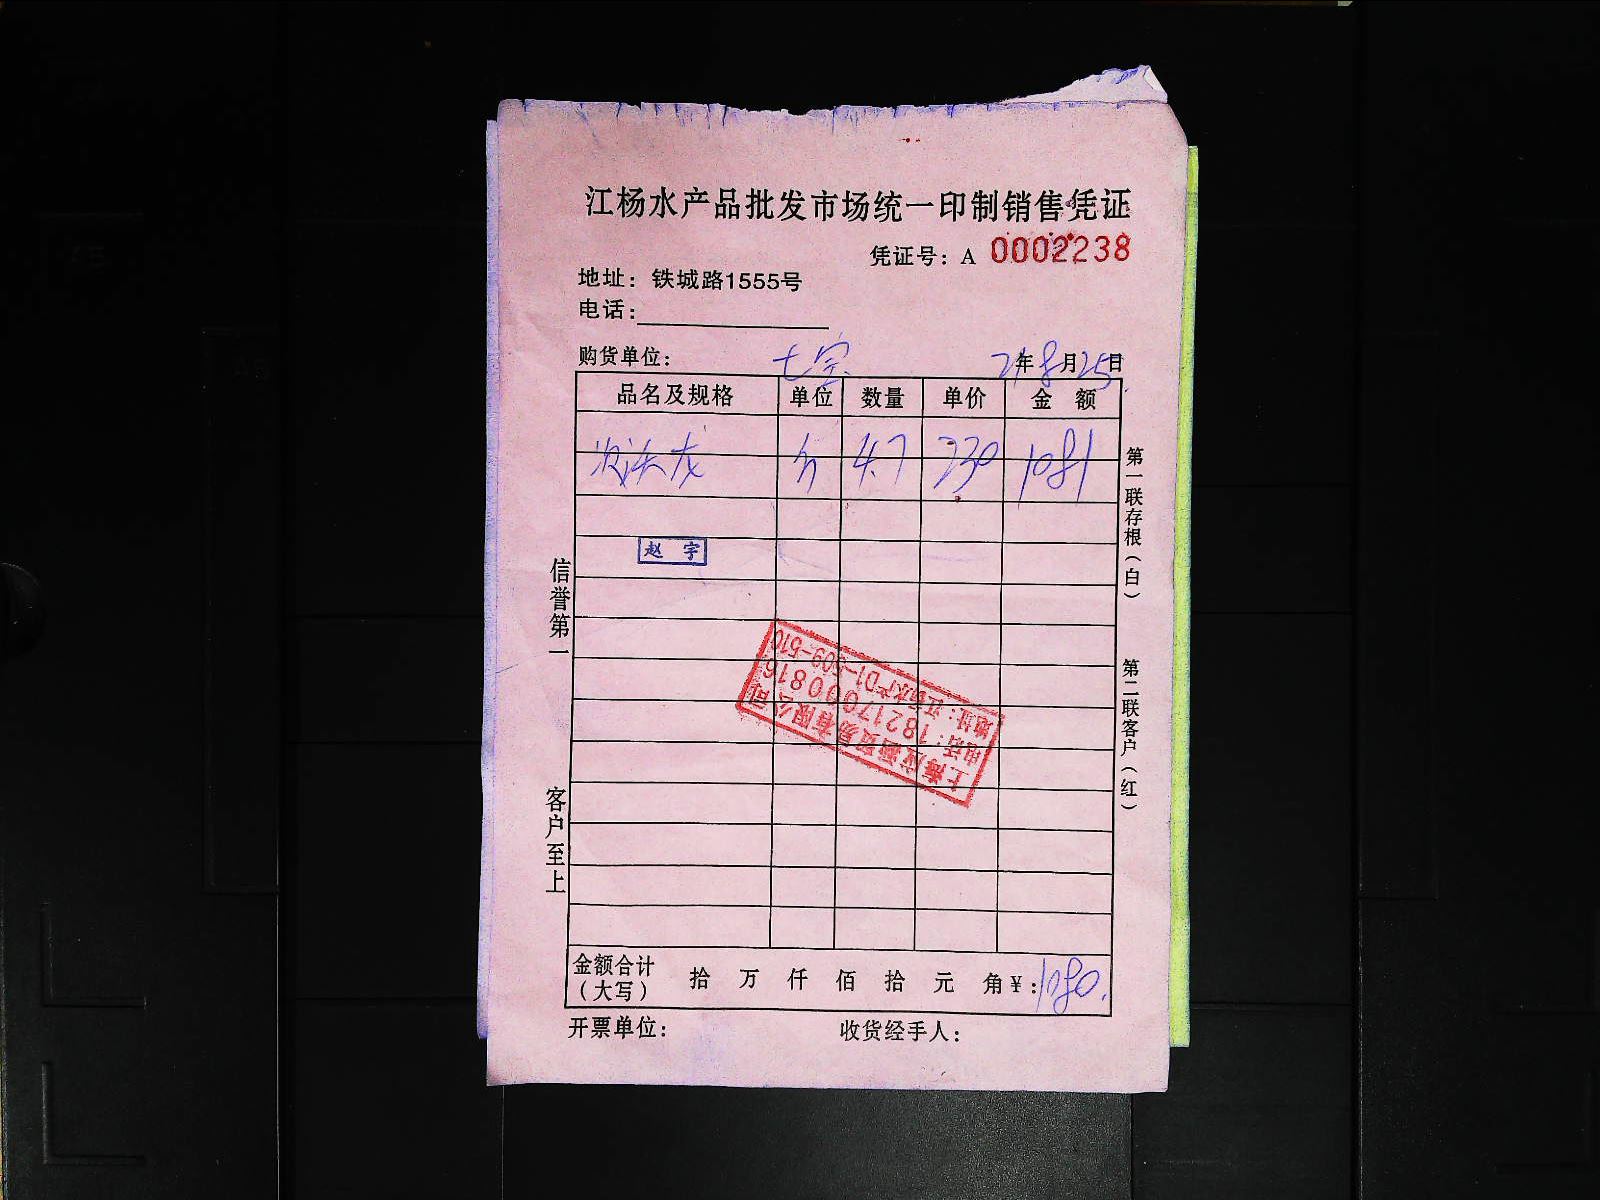 江杨水产品批发市场统一印制销售凭证
凭证号：A 0002238
地址：铁城路1555号
电话：
购货单位：七宝 21年8月25日
品名及规格 单位 数量 单价 金额
波沃龙 斤 4.7 230 1081
赵宇
上海应融贸易有限公司
电话：18217000816
地址：江杨水产D1-509-510
信誉第一
客户至上
第一联存根（白）
第二联客户（红）
金额合计（大写） 拾 万 仟 佰 拾 元 角 ¥：1080.
开票单位： 收货经手人：